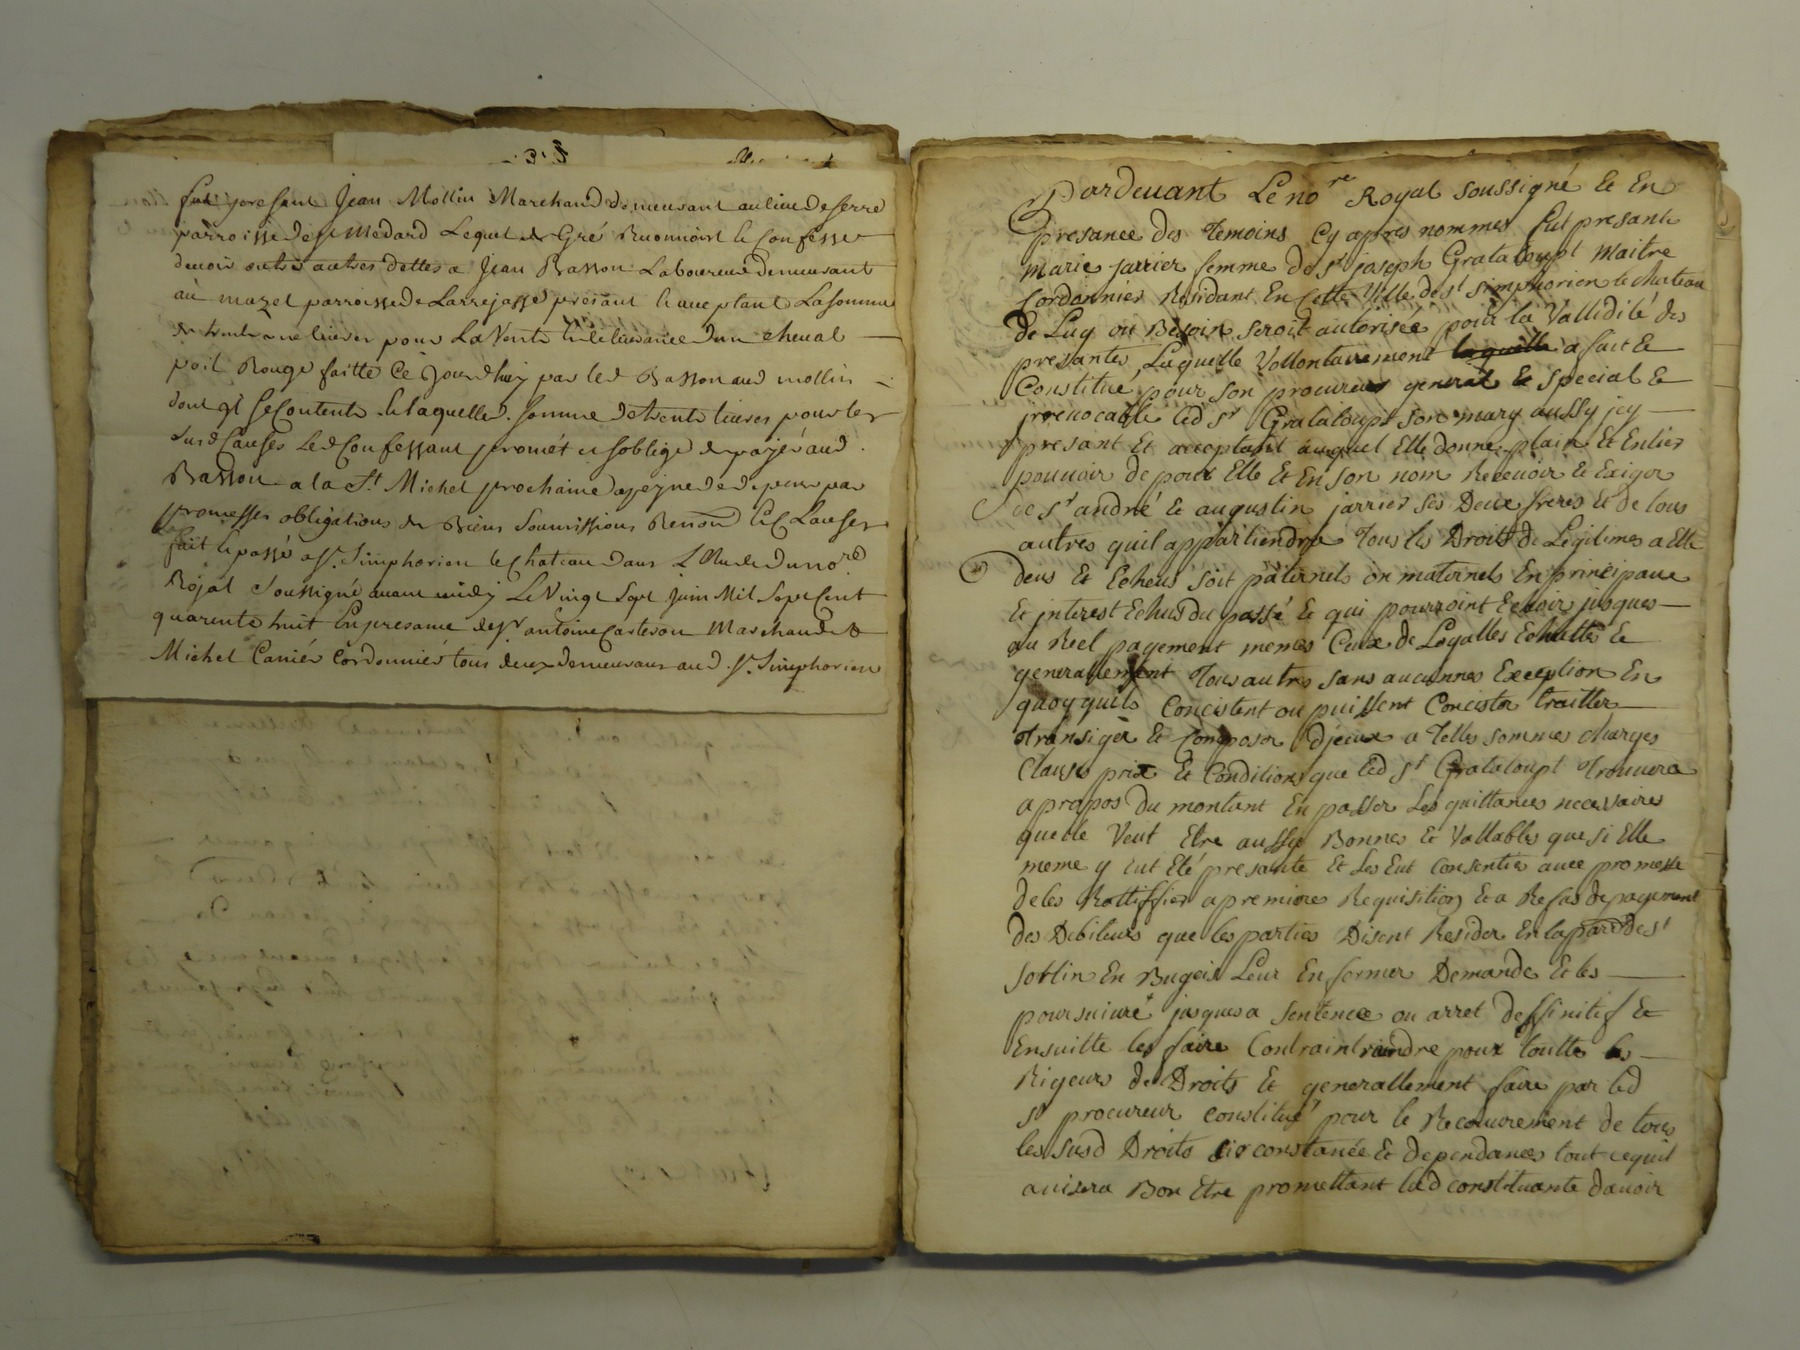 fut present Jean Mollin Marchand demeurant au lieu de serre
parroisse de st Medard Lequel de Gré Reconnoist & Confesse
devoir outre autres dettes a Jean Basson Laboureur demeurant
au mazel parroisse de Larrejasse present & acceptant La somme
de trente livres pour La Vente & delivrance dun cheval
poil Rouge faitte Ce Jourdhuy par led Basson aud mollin
dont il se Contente & laquelle somme de trente livres pour les
susd Causes Led Confessant promet et soblige de payer aud
Basson a la St Michel prochaine a peyne de depens par
promesses obligations de Biens soumissions Renon & Clauses
fait & passé a St Simphorien le Chateau dans L'Etude du nore
Royal soussigné avant midy Le Vingt Sept Juin Mil Sept Cent
quarente huit En presance de sr antoine Casteron Marchand &
Michel Canier Cordonnier tous deux demeurans aud St Simphorien
Pardevant Le nore Royal soussigné & En
presance des Temoins Cy apres nommes fut presante
marie jarrier femme de sr joseph Grataloupt Maitre
Cordonnier Residant En Cette Ville de st simphorien le chateau
de Luy ou Besoin seroit autorisée pour la Vallidité des
presantes Laquelle Vollontairement laquelle a fait &
Constitue pour son procureur general & special &
jrrevocable led sr Grataloupt son mary aussy jcy
presant Et acceptant auquel Elle donne plain Et Entier
pouvoir de pour Elle Et En son nom Recevoir & Exiger
de sr andré & augustin jarrier ses Deux freres Et de tous
autres quil appartiendra Tous les Droits de Legitimes a Elle
deus Et Echeus soit paternels ou maternels En principaux
Et interest Echus du passé & qui pourroint Echoir jusques
au Reel payement memes Ceux de Legalles Echuttes &
generallement Tous autres sans aucunnes Exception En
quoy quils Concistent ou puissent Concister traitter
transiger & Composer Djceux a Telles sommes charges
Clauses prix Et Conditions que led sr Grataloupt trouvera
a propos du montant En passer Les quittances necessaires
quelle Veut Etre aussy Bonnes & Vallables que si Elle
meme y Eut Eté presante Et Les Eut Consenties avec promesse
de les Rattiffier a premiere Requisition Et a Refus de payement
des Debiteurs que les parties Disent Resider En la parre de st
sorlin En Bugeis Leur En former Demande & les
poursuivre jusques a sentence ou arret deffinitif &
Ensuitte les faire Contraintraindre pour touttes les
Rigeurs de Droits & generallement faire par led
sr procureur constitué pour le Recouvrement de tous
les susd Droits circonstance & dependances tout cequil
avisera Bon Etre promettant lad constituante davoir